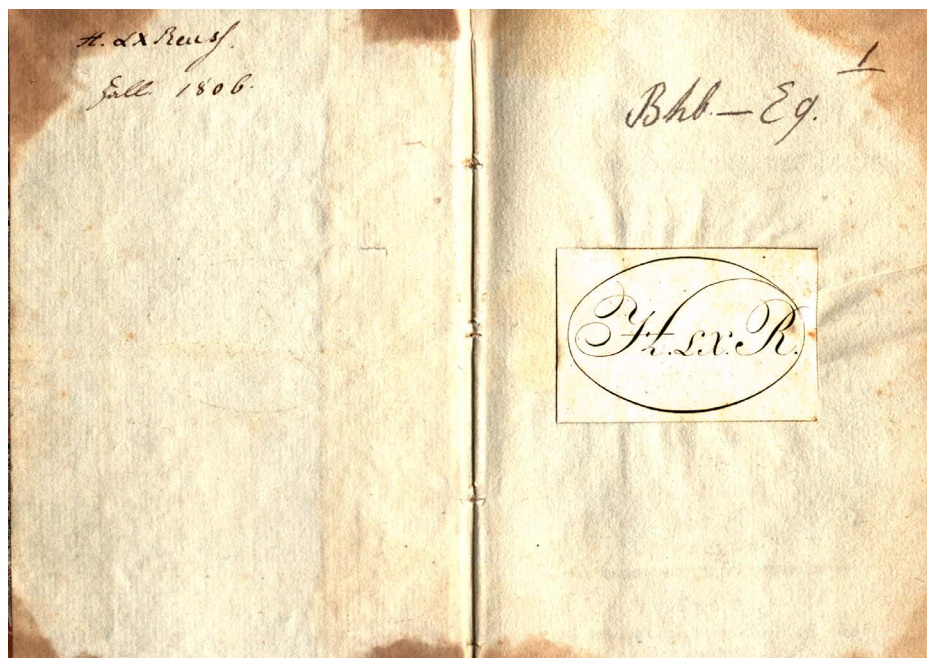 H. LX Reuss.
Hall. 1806.
1
Bhb. — Eq.
H. LX. R.